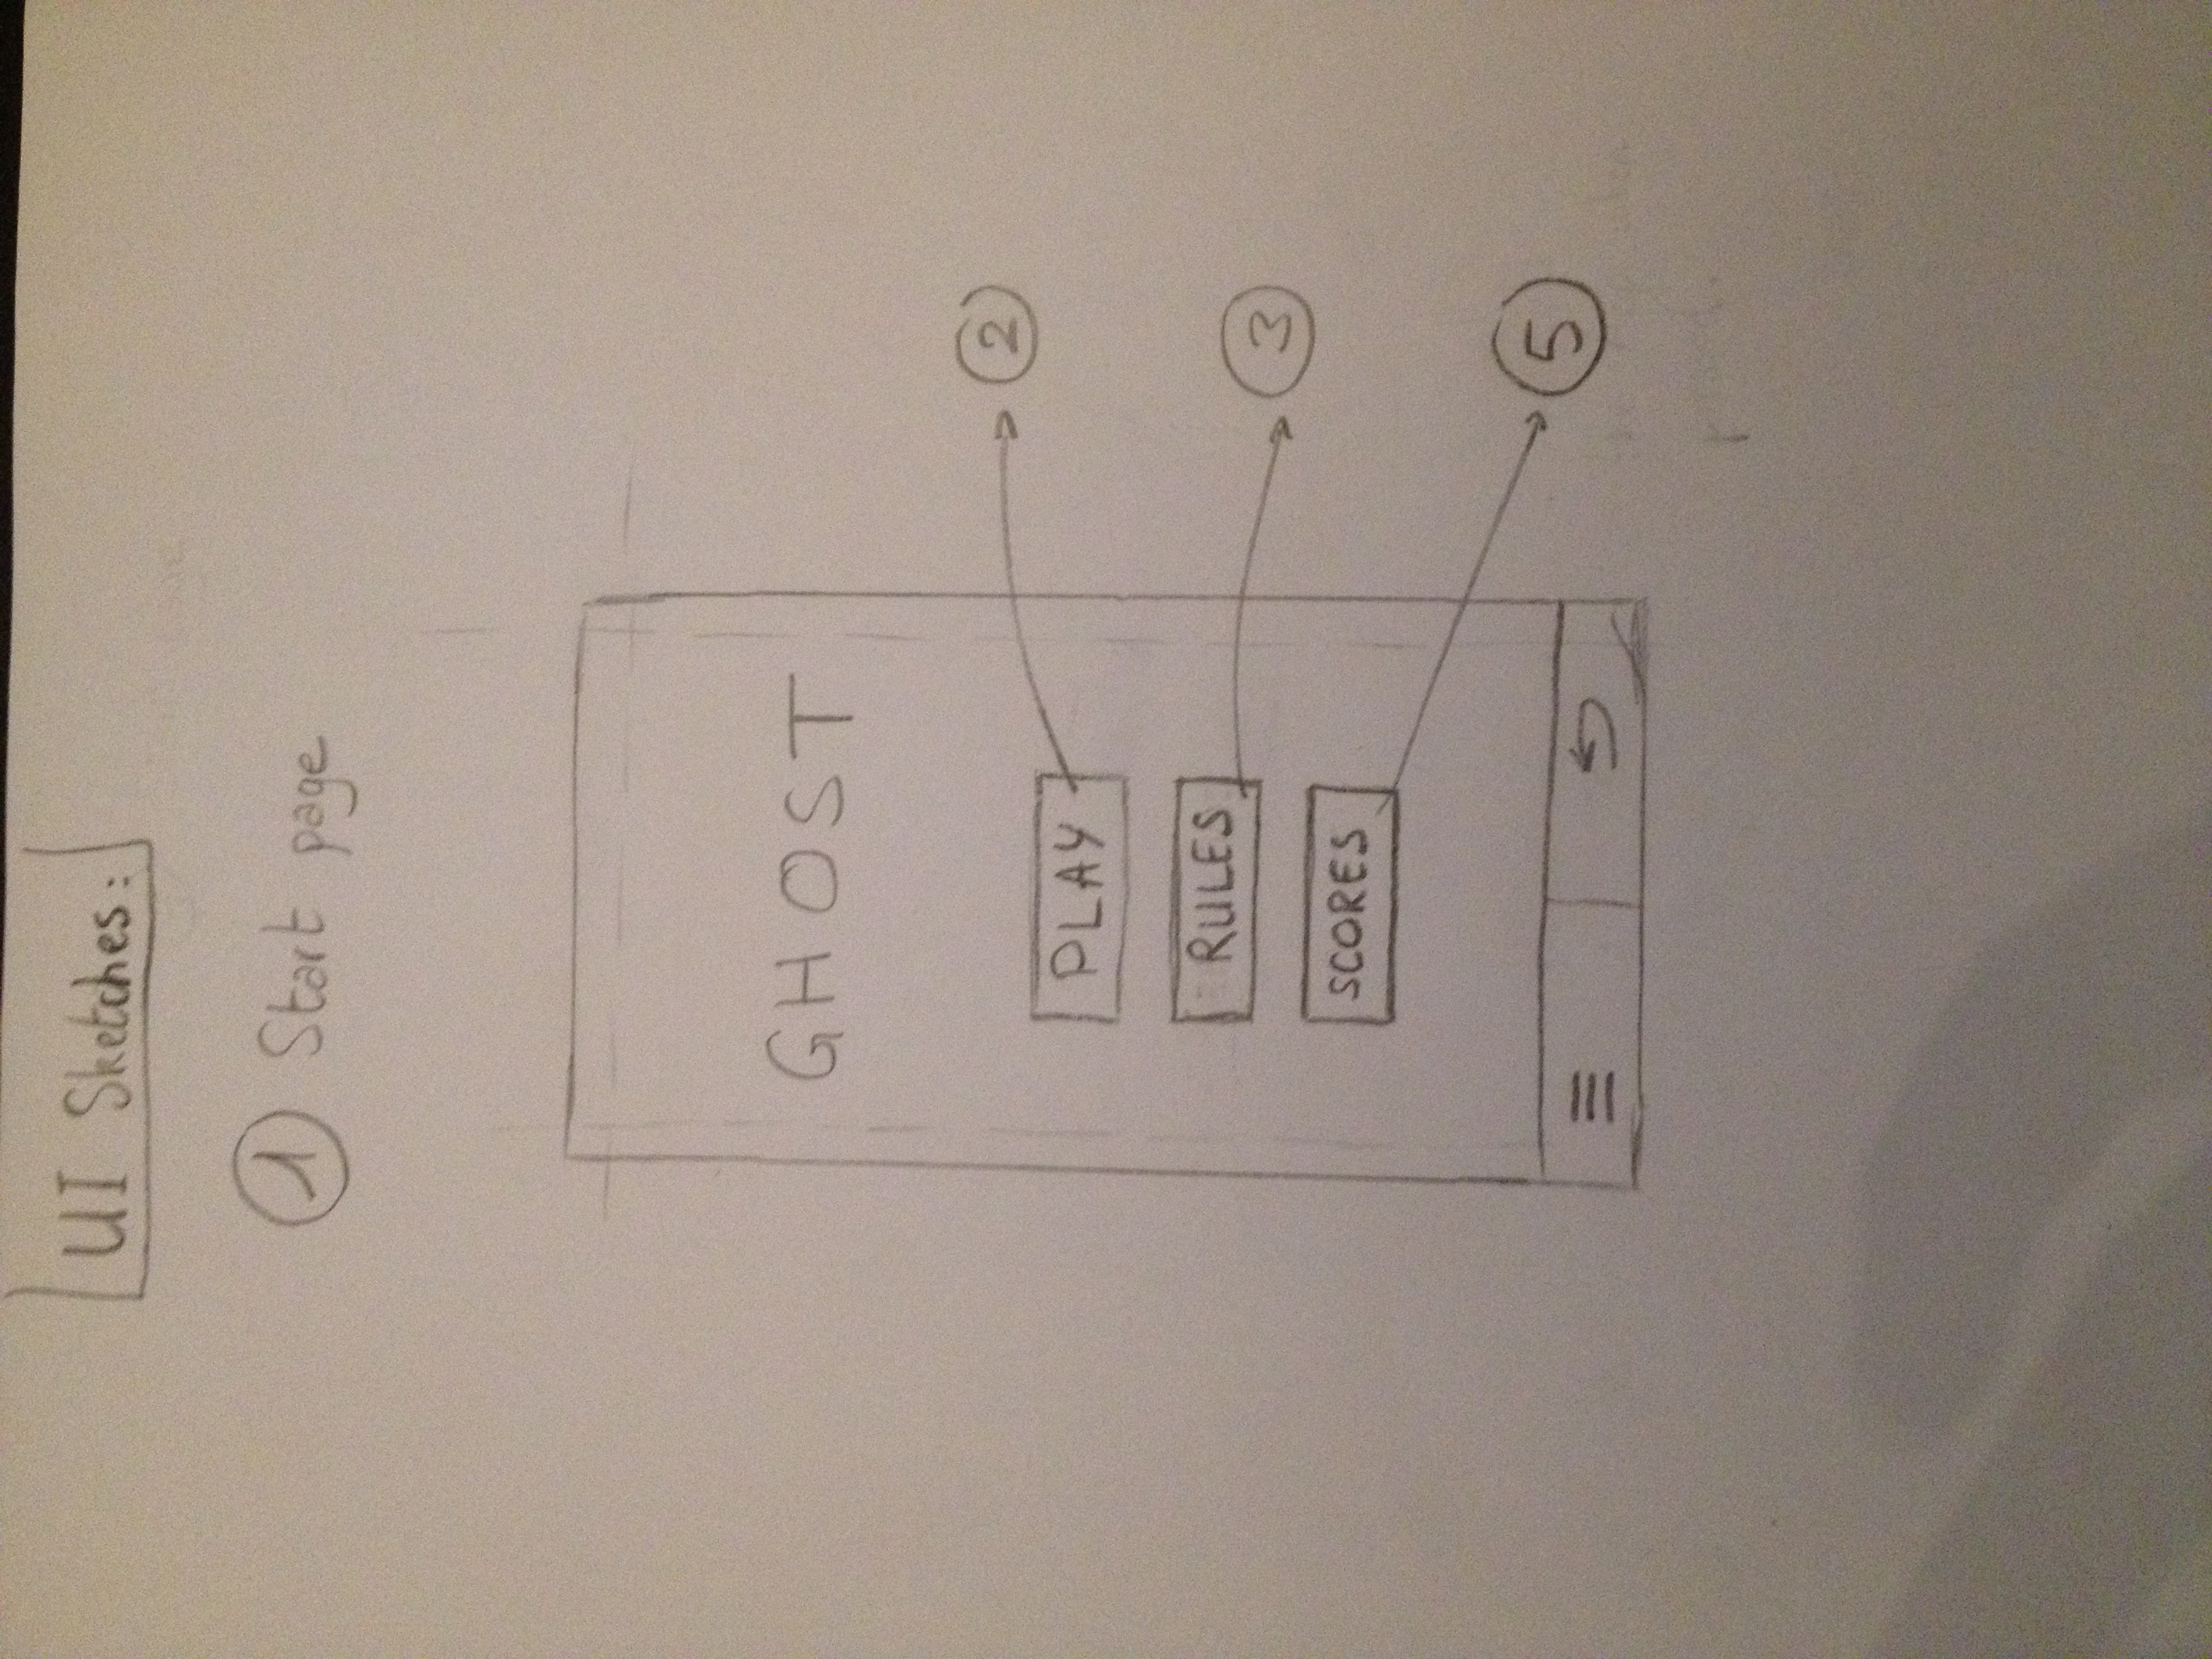 UI Sketches:
1 Start page
GHOST
PLAY
2
RULES
3
SCORES
5